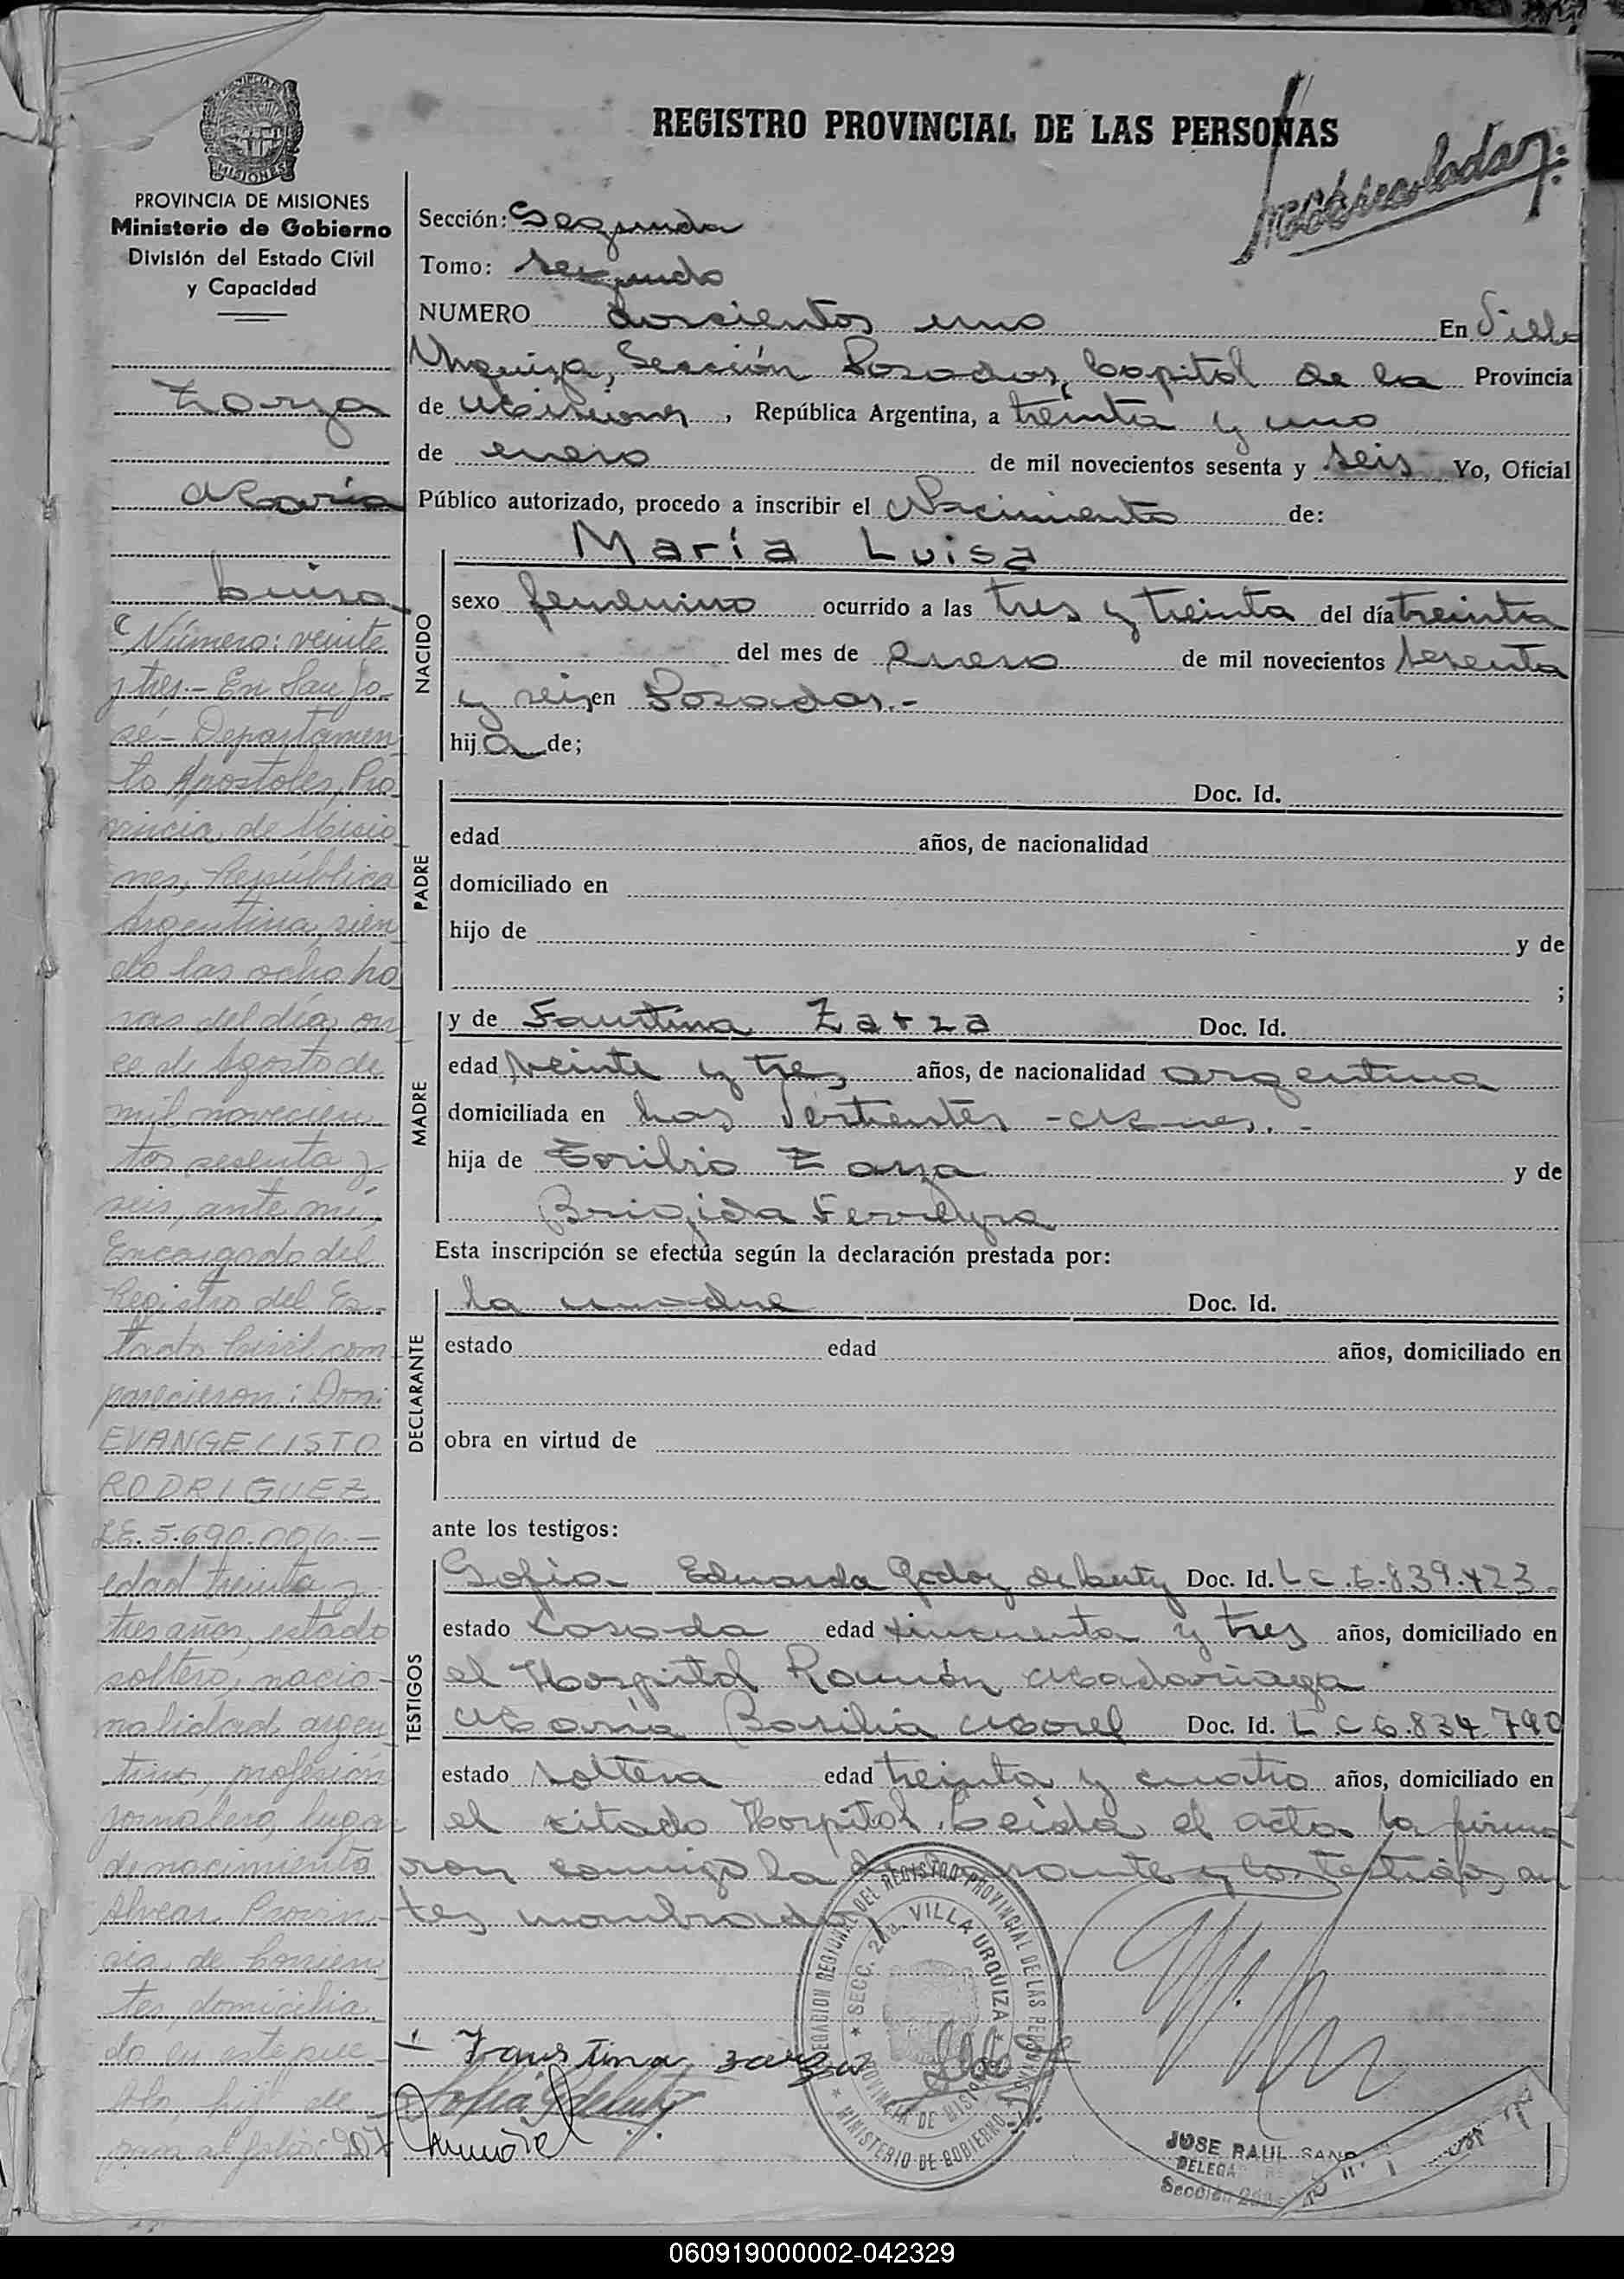 REGISTRO PROVINCIAL DE LAS PERSONAS
PROVINCIA DE MISIONES
Ministerio de Gobierno
División del Estado Civil
y Capacidad
Zarza
María
Luisa
Número: veinte
y tres.- En San Jo-
sé - Departamen-
to Apostoles, Pro-
vincia de Misio-
nes, República
Argentina, sien-
do las ocho ho-
ras del día on-
ce de Agosto de
mil novecien-
tos sesenta y
seis, ante mí,
Encargado del
Registro del Es-
tado Civil, com-
parecieron: Don:
EVANGELISTO
RODRIGUEZ
LE. 5.690.006.-
edad treinta y
tres años, estado
soltero, nacio-
nalidad argen-
tino, profesión
jornalero, lugar
de nacimiento
Alvear, Provin-
cia de Corrien-
tes, domicilia-
do en este pue-
blo, hijo de
pasa al folio 207
Sección: Segunda
Tomo: segundo
NUMERO doscientos uno En Villa
Urquiza, Sección Posadas, Capital de la Provincia
de Misiones, República Argentina, a treinta y uno
de enero de mil novecientos sesenta y seis Yo, Oficial
Público autorizado, procedo a inscribir el Nacimiento de:
NACIDO
María Luisa
sexo femenino ocurrido a las tres y treinta del día treinta
del mes de Enero de mil novecientos sesenta
y seis en Posadas.-
hija de;
PADRE
Doc. Id.
edad años, de nacionalidad
domiciliado en
hijo de y de
;
MADRE
y de Faustina Zarza Doc. Id.
edad veinte y tres años, de nacionalidad argentina
domiciliada en Las Vertientes - Mnes. -
hija de Toribio Zarza y de
Brigida Ferreyra
Esta inscripción se efectúa según la declaración prestada por:
DECLARANTE
la madre Doc. Id.
estado edad años, domiciliado en
obra en virtud de
ante los testigos:
TESTIGOS
Sofia Eduarda Godoy de Doc. Id. L C. 6.839.423
estado casada edad cincuenta y tres años, domiciliado en
el Hospital Ramón Madariaga
María Basilia Morel Doc. Id. L.C 6.834.790
estado soltera edad treinta y cuatro años, domiciliado en
el citado Hospital. Leída el acta la firma
ron conmigo la y los testigos an
tes nombrados
Faustina zarza
DELEGACION REGIONAL DEL REGISTRO PROVINCIAL DE LAS PERSONAS
SECC. 2da. VILLA URQUIZA
PROVINCIA DE MISIONES
MINISTERIO DE GOBIERNO
JOSE RAUL
Sección
060919000002-042329